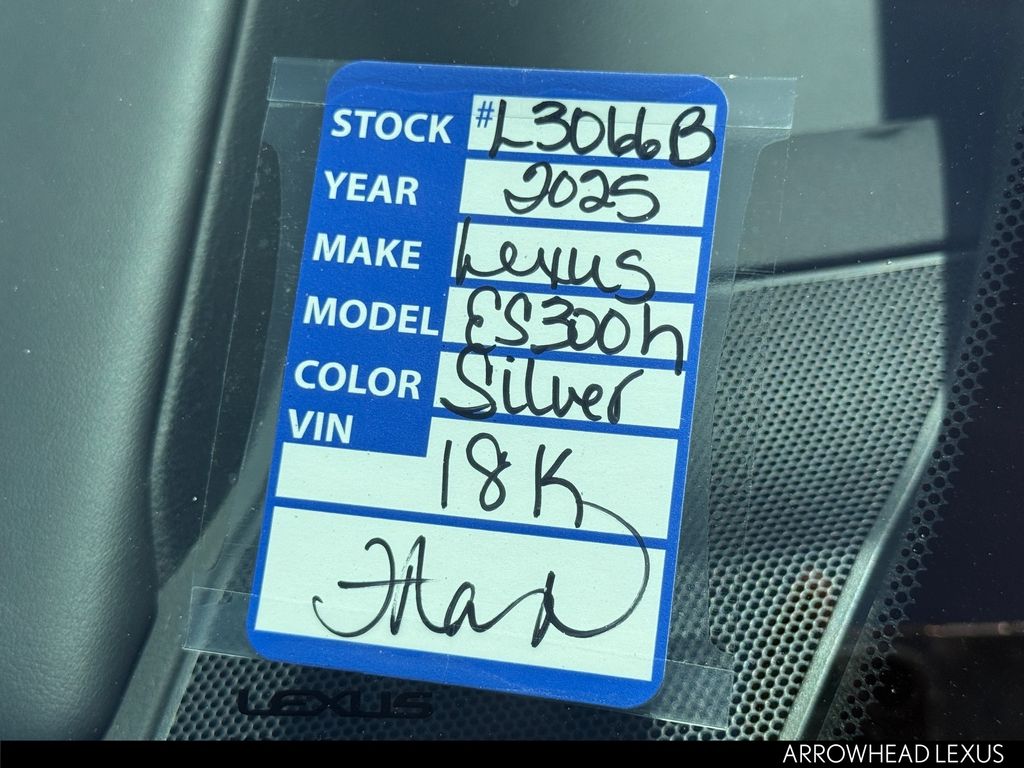 STOCK # L3066B
YEAR 2025
MAKE Lexus
MODEL ES300h
COLOR Silver
VIN
18K
LEXUS
ARROWHEAD LEXUS